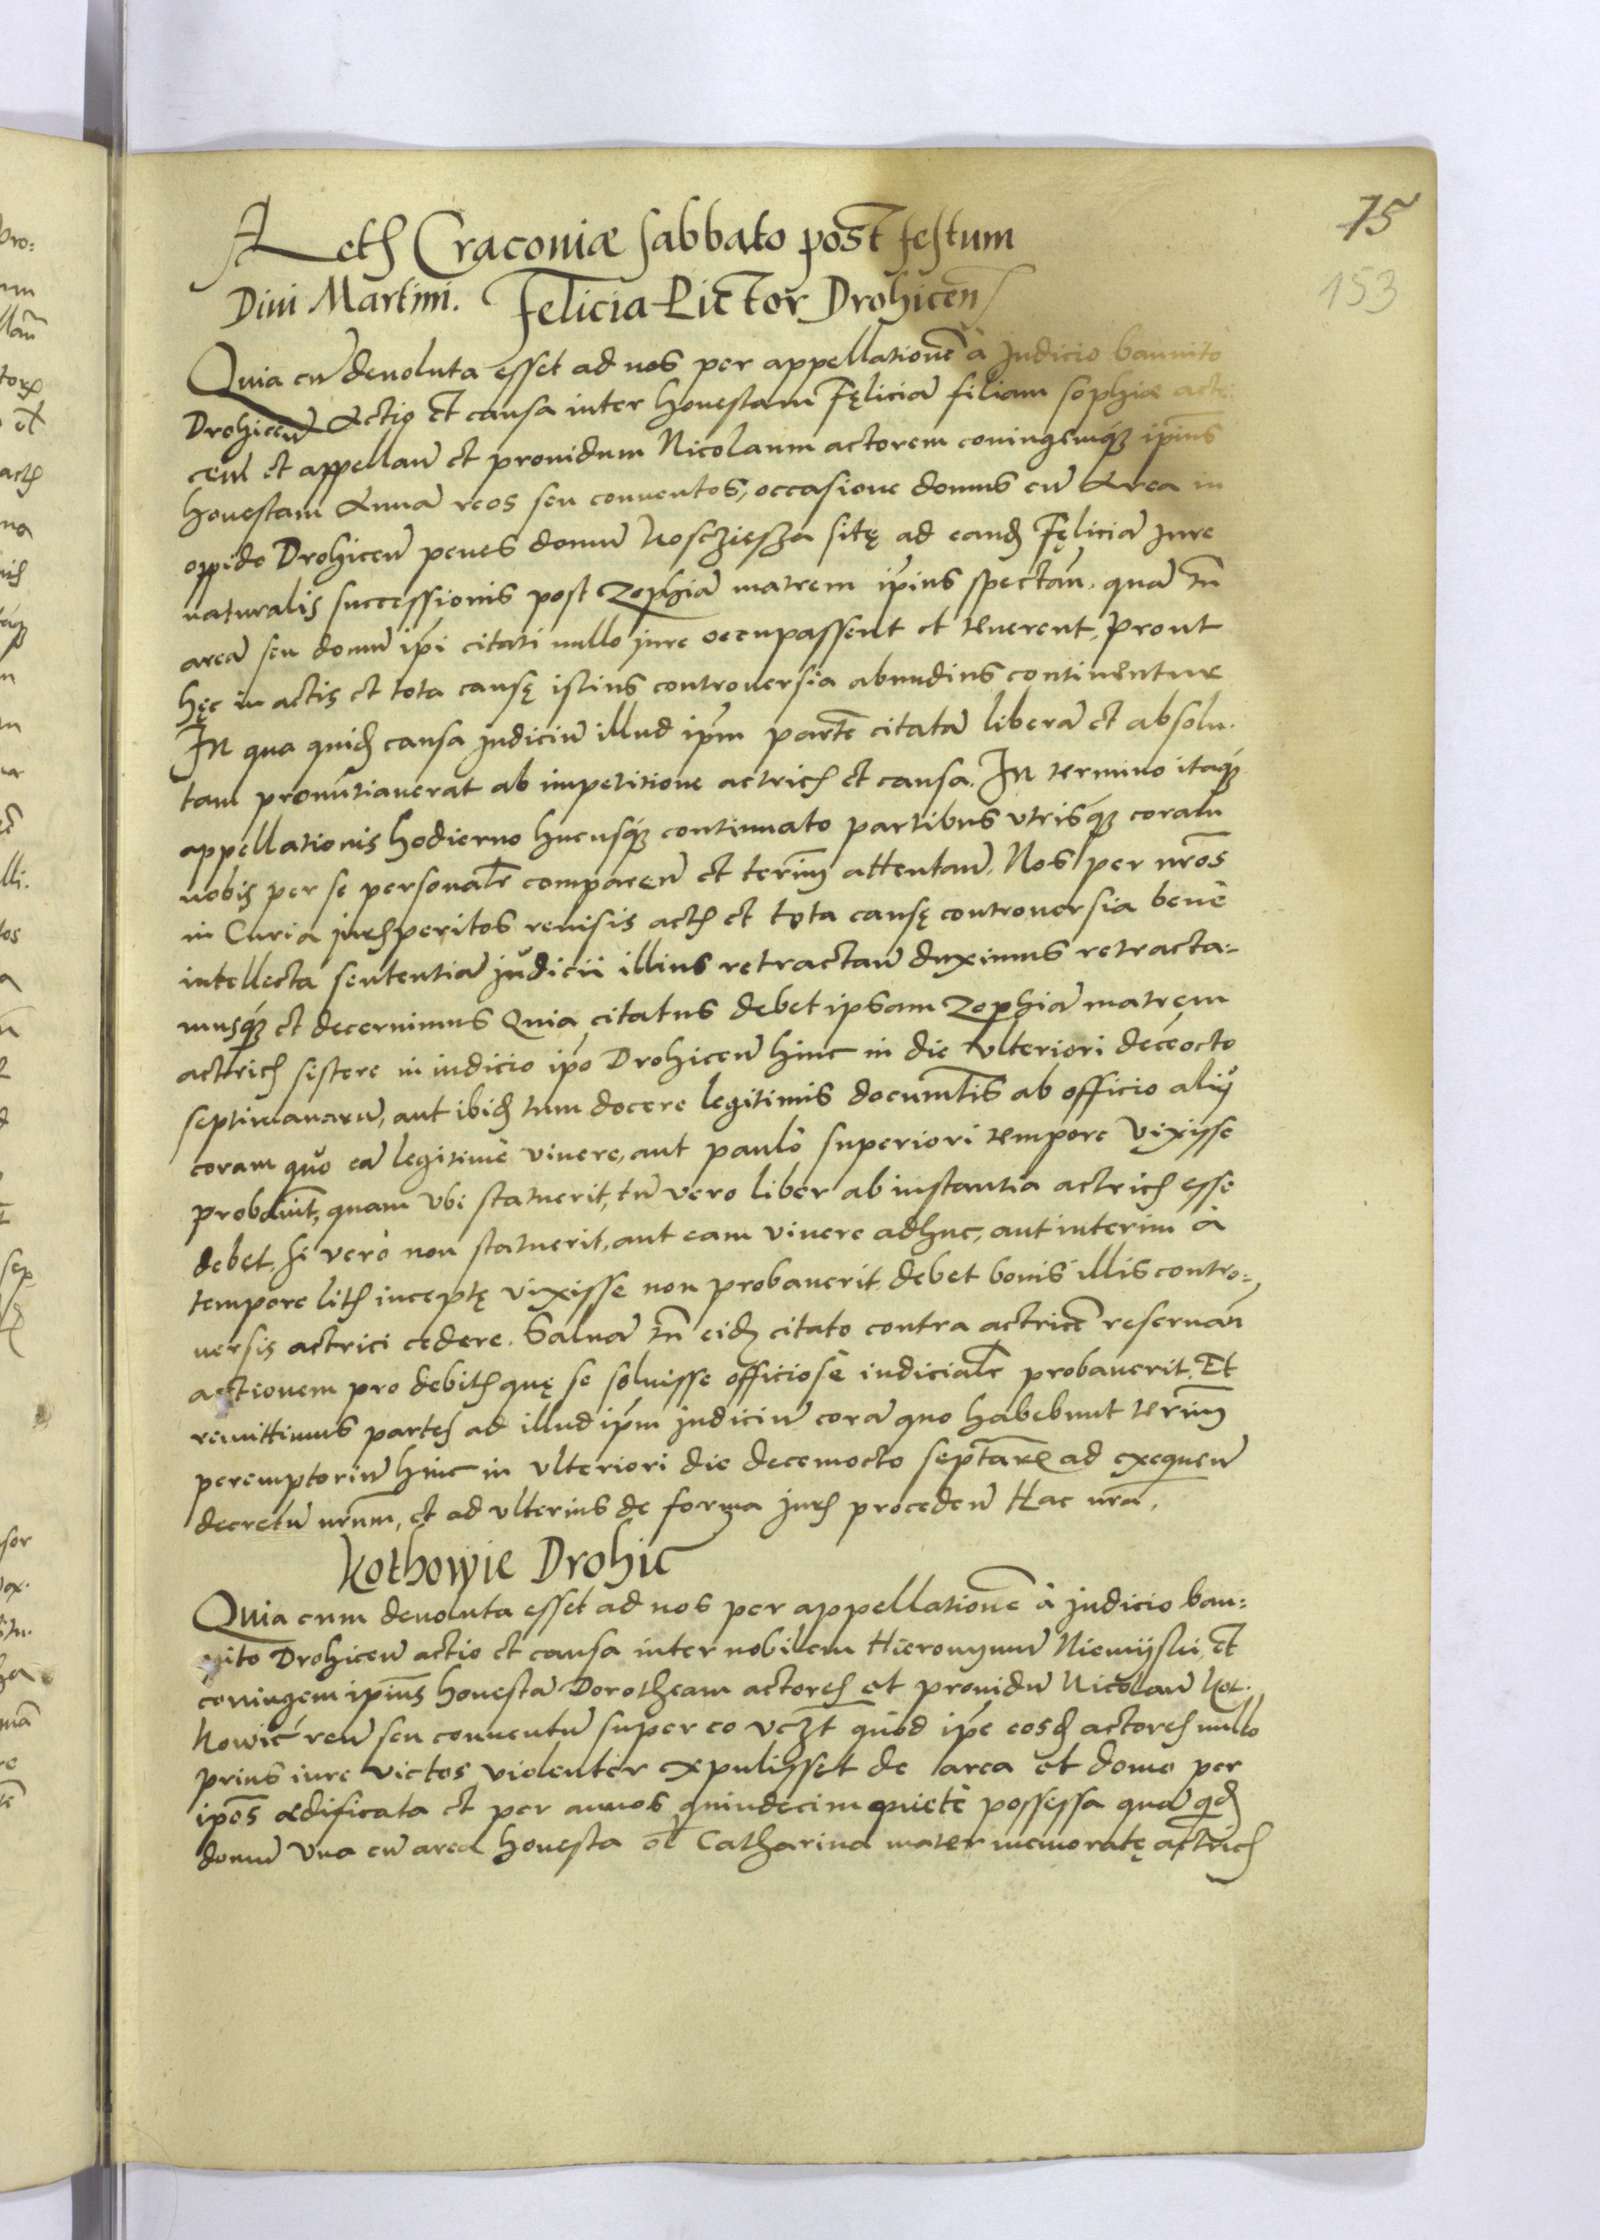 75
153
Acth Craconiæ sabbato post festum
Divi Martini. Felicia Pictor Drohicen
Quia cū devoluta esset ad nos per appellationē à Judicio bannito
Drohiceñ Actio et causa inter honestam Fęliciā filiam sophiæ
et appellañ et providum Nicolaum actorem coniugemque ipius
honestam Annā reos seu conventos, occasione domus cū Area in
oppido Drohiceñ penes domū sitę ad eand Fęliciā jure
naturalis successionis post Zophiā matrem ipius spectañ. quā tñ
areā seu domū ipi citati nullo jure occupassent et tenerent, prout
hęc in actis et tota causę istius controversia abundius continentur
In qua quid causa judiciū illud ipm partē citatā liberā et absolu-
tam pronūtiaverat ab impetitione actrich et causa. In termino itaque
appellationis hodierno hucusque continuato partibus utrisque coram
nobis per se personalr compareñ et terim attentañ. Nos per nros
in Curia jurisperitos revisis acth et tota causę controversia bene
intellecta sententiā judicii illius retractañ duximus retracta-
musque et decernimus Quia citatus debet ipsam Zophiā matrem
actrich sistere in iudicio ipo Drohiceñ hinc in die ulteriori decēocto
septimanarū, aut ibid tum docere legitimis documtis ab officio aliq
coram quo eā legitime vivere, aut paulò superiori tempore vixisse
probavit, quam ubi statuerit, tū vero liber ab instantia actrich esse
debet, si verò non statuerit, aut eam vivere adhuc, aut interim à
tempore lith inceptę vixisse non probaverit, debet bonis illis contro-
versis actrici cedere. Salvā tñ eid citato contra actricē reservañ
actionem pro debith quę se solvisse officiosè iudicialr probaverit. Et
remittimus partes ad illud ipm judiciū corā quo habebunt terim
peremptoriū hinc in ulteriori die decemocto septarū ad exequeñ
decretū nrum, et ad ulterius de forma juris procedeñ Hac nrā.
Kothowie Drohic
Quia cum devoluta esset ad nos per appellationē à judicio ban-
nito Drohiceñ actio et causa inter nobilem Hieronymū Niemijski et
coniugem ipius honestā Dorotheam actores et providū Nicolaū Kot-
howic reū seu conventū super eo vczt quod ipe eosd actores nullo
prius iure victos violenter expulisset de area et domo per
ipos ædificata et per annos quindecim quietè possessa quā qd
domū una cū area honesta ol Catharina mater memoratę actrich